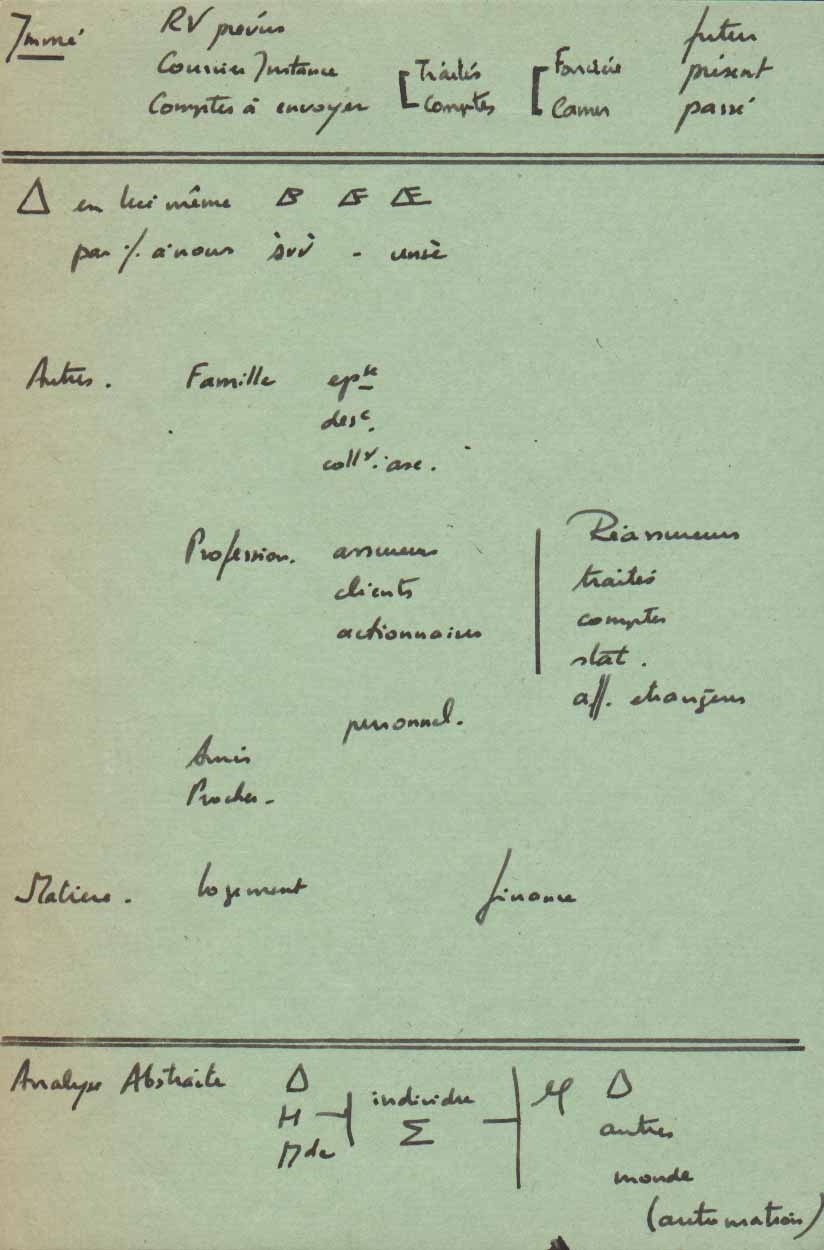 Immé RV prévus futur
Courrier Instance Traités présent
Comptes à envoyer Comptes passé
Δ en lui même
par % à nous
Autres. Famille
desc.
Profession. assureurs Réassureurs
clients traités
actionnaires comptes
stat.
aff. etrangères
personnel.
Amis
Proches.
Matière. logement finance
Analyse Abstraite Δ individu Δ
H Σ autres
Mde monde
(automation)